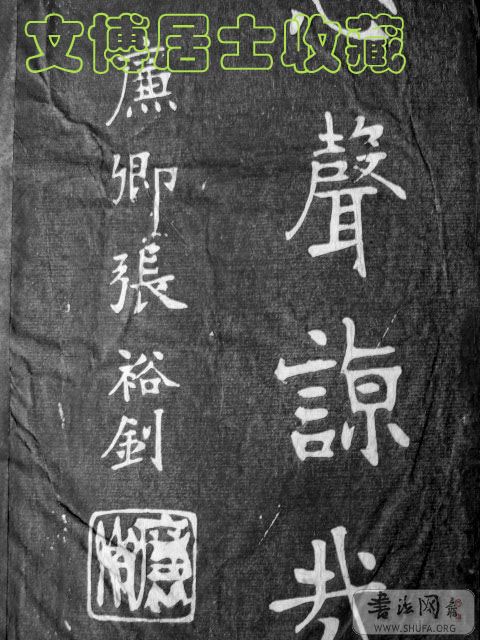 文博居士收藏
聲諒哉
廉卿張裕釗
廉卿
书法网
WWW.SHUFA.ORG